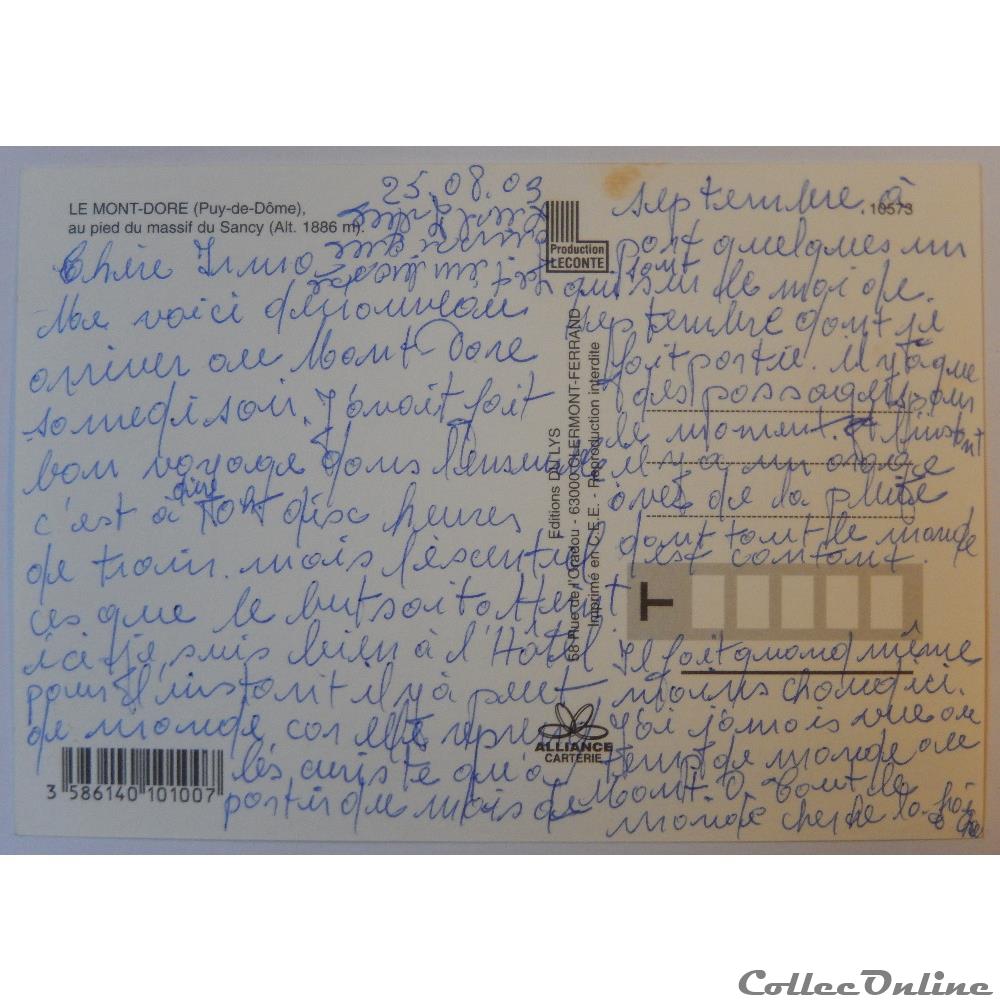 25.08.03
LE MONT-DORE (Puy-de-Dôme),
au pied du massif du Sancy (Alt. 1886 m).
Chère Irma
Me voici denouveau
arriver au Mont-Dore
samedi soir. J'avait fait
bon voyage dans l'ensemble
c'est à dire disc heures
de train. mais l'escentiel
ces que le but soit
ici je suis bien à l'Hôtel
pour l'instant il y à peut
de monde car elle
les curiste qu'a
partir du mois de
septembre à
part quelques un
qui sont sur le moi de
septembre dont je
fait partie. il y à que
des passages pour
le moment. l'instant
il y à un orage
avec de la pluie
dont tout le monde
est content.
Il fait quand même
moins chaud ici.
J'ai jamais vue au
tent de monde au
Mont. D. tout le
monde cherche la
Production
LECONTE
10573
Editions DU LYS
68 Rue de l'Oradou - 63000 CLERMONT-FERRAND
Imprimé en C.E.E. - Reproduction interdite
T
ALLIANCE
CARTERIE
3 586140 101007
CollecOnline